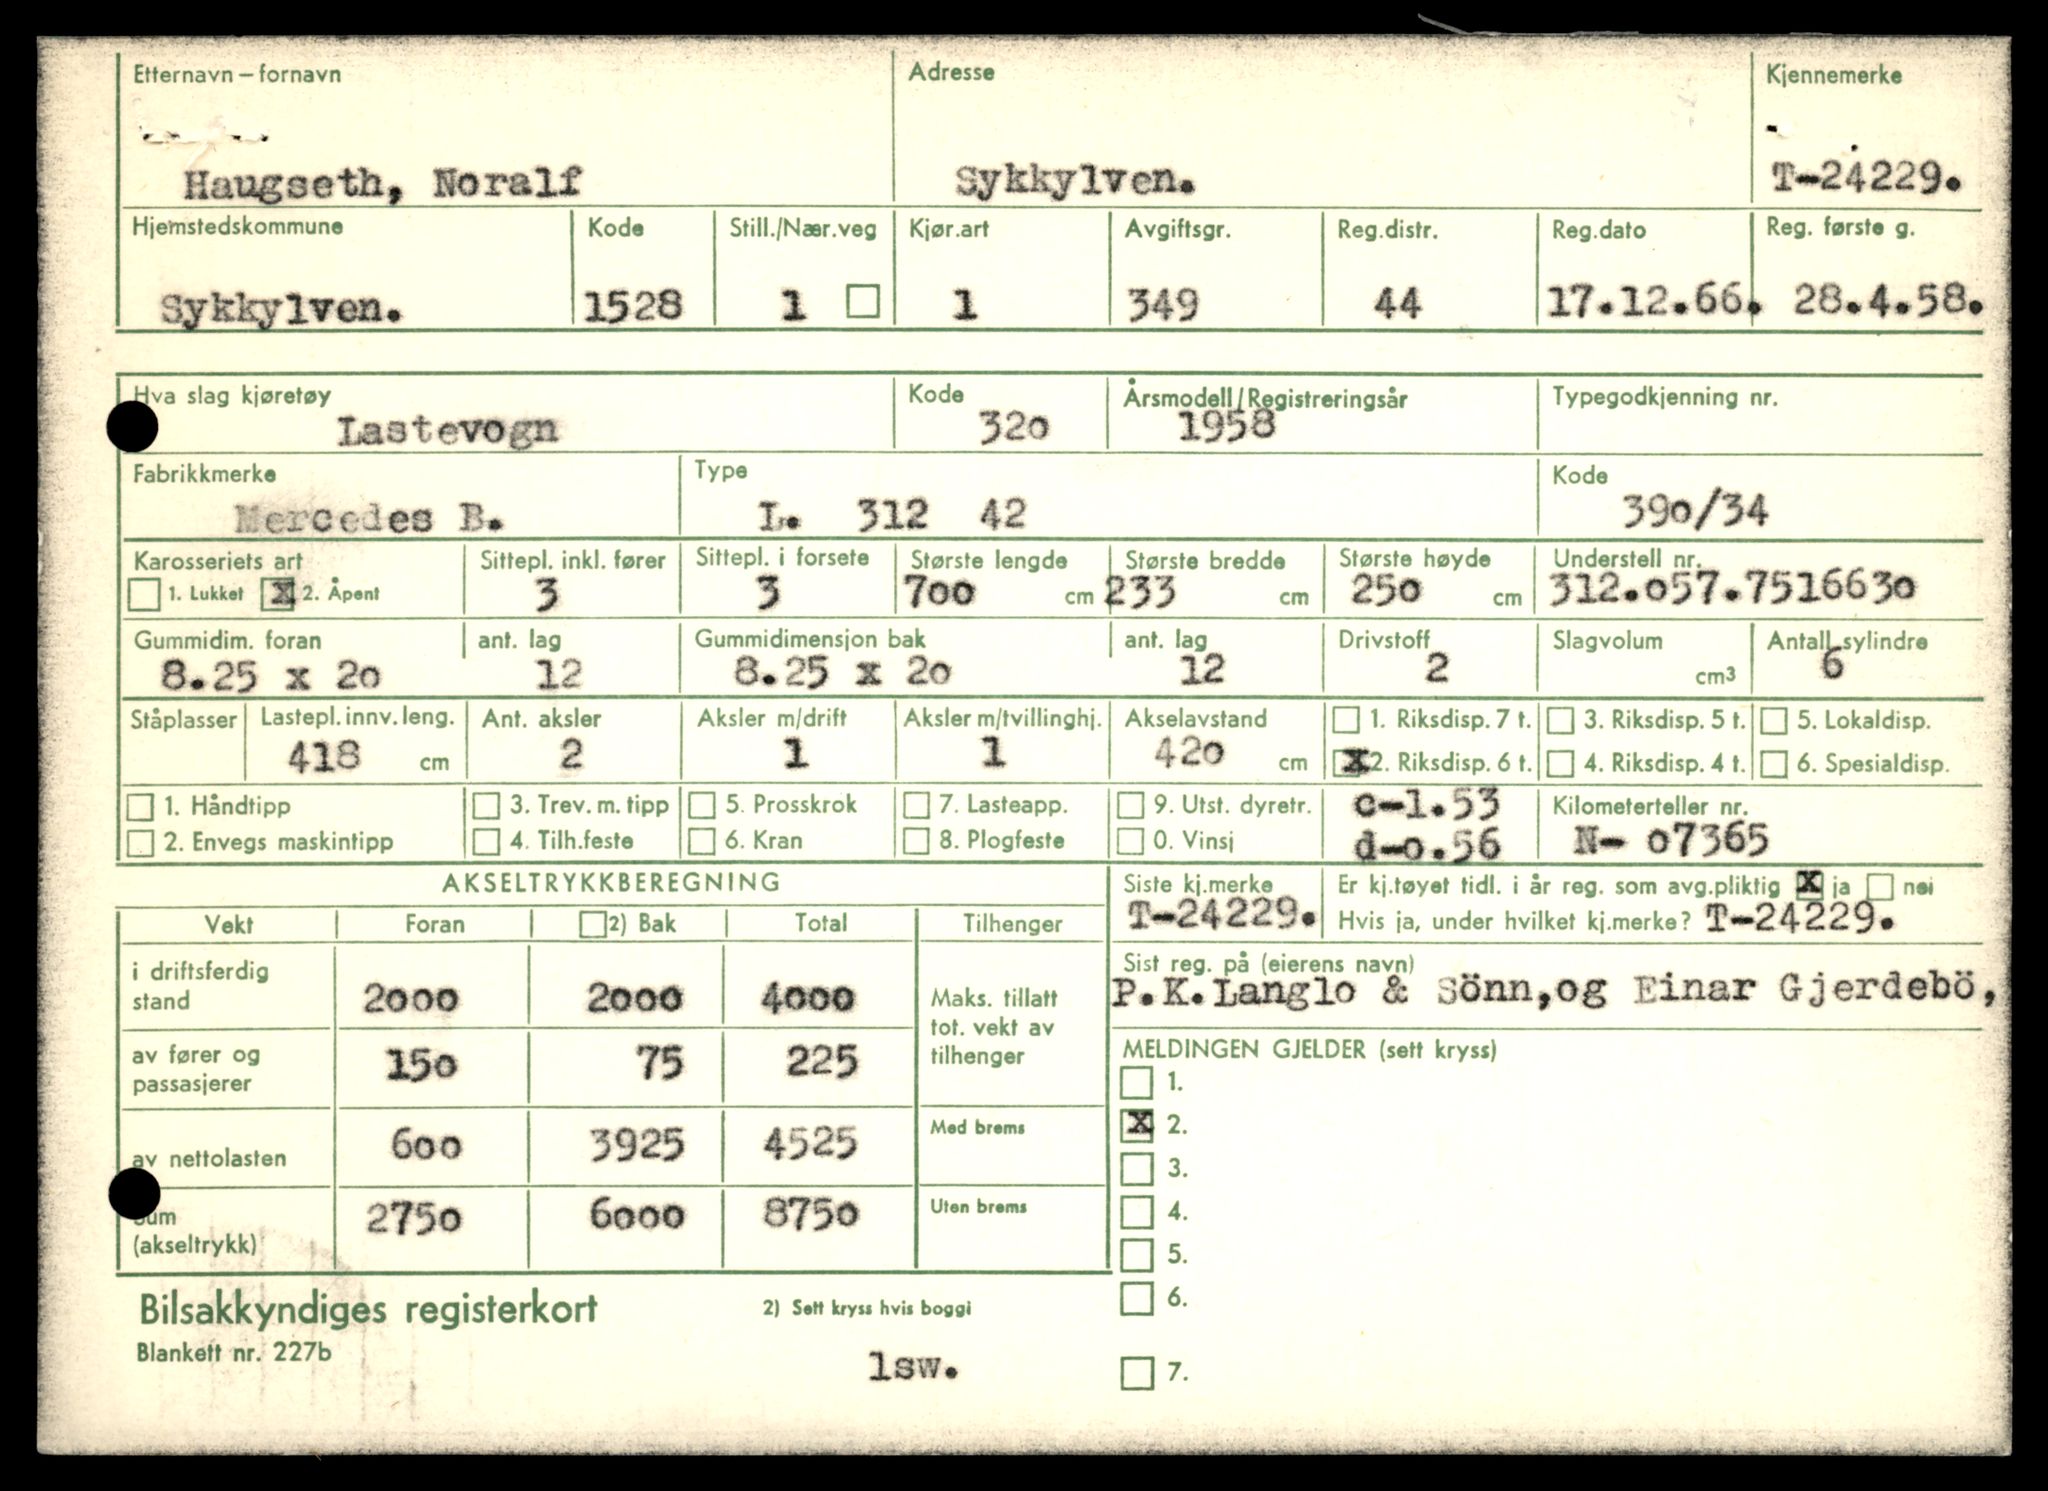 Etternavn – fornavn Adresse Kjennemerke
Haugseth, Noralf Sykkylven. T-24229.
Hjemstedskommune Kode Still./Nær.veg Kjør.art Avgiftsgr. Reg.distr. Reg.dato Reg. første g.
Sykkylven. 1528 1 1 349 44 17.12.66. 28.4.58.
Hva slag kjøretøy Kode Årsmodell/Registreringsår Typegodkjenning nr.
Lastevogn 320 1958
Fabrikkmerke Type Kode
Mercedes B. L. 312 42 390/34
Karosseriets art Sittepl. inkl. fører Sittepl. i forsete Største lengde Største bredde Største høyde Understell nr.
1. Lukket X 2. Åpent 3 3 700 cm 233 cm 250 cm 312.057.7516630
Gummidim. foran ant. lag Gummidimensjon bak ant. lag Drivstoff Slagvolum Antall sylindre
8.25 x 20 12 8.25 x 20 12 2 cm3 6
Ståplasser Lastepl. innv. leng. Ant. aksler Aksler m/drift Aksler m/tvillinghj. Akselavstand 1. Riksdisp. 7 t. 3. Riksdisp. 5 t. 5. Lokaldisp.
418 cm 2 1 1 420 cm X 2. Riksdisp. 6 t. 4. Riksdisp. 4 t. 6. Spesialdisp.
1. Håndtipp 3. Trev. m. tipp 5. Prosskrok 7. Lasteapp. 9. Utst. dyretr. c-1.53 Kilometerteller nr.
2. Envegs maskintipp 4. Tilh.feste 6. Kran 8. Plogfeste 0. Vinsj d-0.56 N- 07365
AKSELTRYKKBEREGNING Siste kj.merke Er kj.tøyet tidl. i år reg. som avg.pliktig X ja nei
T-24229. Hvis ja, under hvilket kj.merke? T-24229.
Vekt Foran 2) Bak Total Tilhenger
Sist reg. på (eierens navn)
P.K.Langlo & Sönn,og Einar Gjerdebö,
i driftsferdig
stand 2000 2000 4000 Maks. tillatt
tot. vekt av
av fører og tilhenger
passasjerer 150 75 225
MELDINGEN GJELDER (sett kryss)
1.
av nettolasten 600 3925 4525 Med brems
X 2.
3.
Sum 2750 6000 8750 Uten brems
(akseltrykk)
4.
5.
Bilsakkyndiges registerkort 2) Sett kryss hvis boggi
6.
Blankett nr. 227b
lsw.
7.